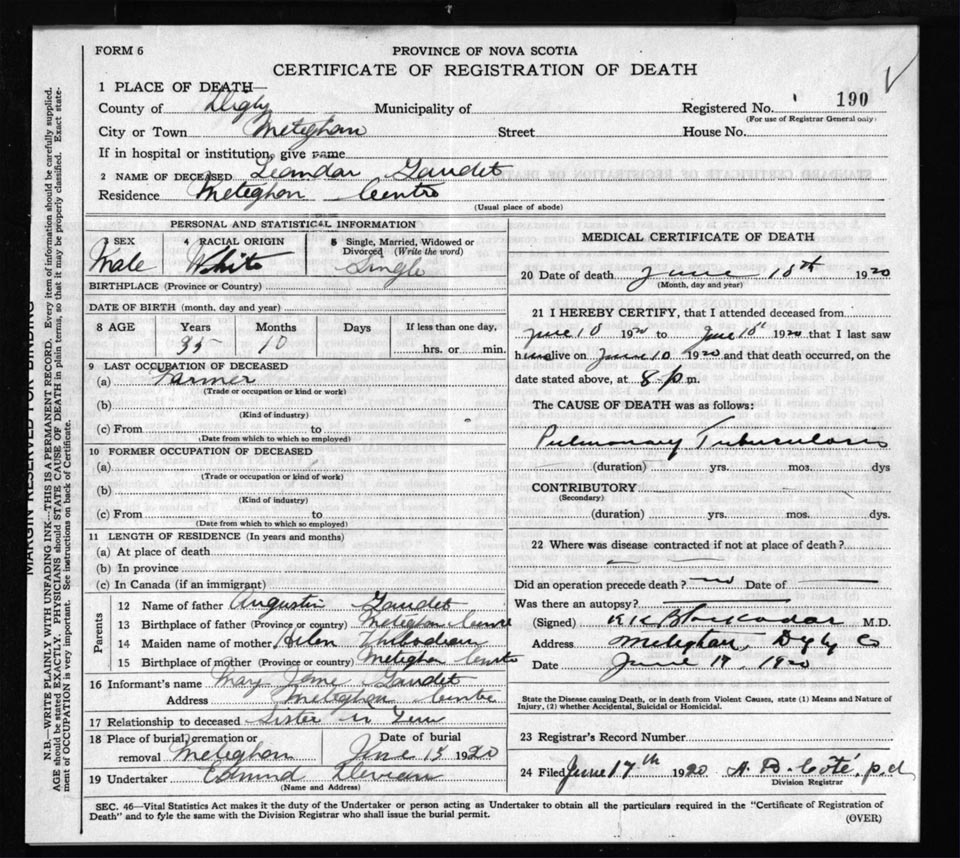 FORM 6
PROVINCE OF NOVA SCOTIA
CERTIFICATE OF REGISTRATION OF DEATH
1 PLACE OF DEATH—
County of Digby Municipality of Registered No. 190
(For use of Registrar General only)
City or Town Meteghan Street House No.
If in hospital or institution, give name
2 NAME OF DECEASED Leandar Gaudet
Residence Meteghan Centre
(Usual place of abode)
PERSONAL AND STATISTICAL INFORMATION
3 SEX 4 RACIAL ORIGIN 5 Single, Married, Widowed or Divorced (Write the word)
Male White Single
BIRTHPLACE (Province or Country)
DATE OF BIRTH (month, day and year)
8 AGE Years Months Days If less than one day,
35 10 hrs. or min.
9 LAST OCCUPATION OF DECEASED
(a) Farmer
(Trade or occupation or kind or work)
(b)
(Kind of industry)
(c) From to
(Date from which to which so employed)
10 FORMER OCCUPATION OF DECEASED
(a)
(Trade or occupation or kind of work)
(b)
(Kind of industry)
(c) From to
(Date from which to which so employed)
11 LENGTH OF RESIDENCE (In years and months)
(a) At place of death
(b) In province
(c) In Canada (if an immigrant)
Parents
12 Name of father Augustin Gaudet
13 Birthplace of father (Province or country) Meteghan Centre
14 Maiden name of mother Helen Thibodeau
15 Birthplace of mother (Province or country) Meteghan Centre
16 Informant's name Mary Jane Gaudet
Address Meteghan Centre
17 Relationship to deceased Sister in Law
18 Place of burial, cremation or removal Meteghan Date of burial June 15 1920
19 Undertaker Edmund
(Name and Address)
MEDICAL CERTIFICATE OF DEATH
20 Date of death June 10th 1920
(Month, day and year)
21 I HEREBY CERTIFY, that I attended deceased from
June 10 1920 to June 10th 1920 that I last saw
him alive on June 10 1920 and that death occurred, on the
date stated above, at 8 p m.
The CAUSE OF DEATH was as follows:
Pulmonary Tuberculosis
(duration) yrs. mos. dys
CONTRIBUTORY
(Secondary)
(duration) yrs. mos. dys.
22 Where was disease contracted if not at place of death?
Did an operation precede death? no Date of
Was there an autopsy?
(Signed) M.D.
Address Meteghan, Digby Co
Date June 17, 1920
State the Disease causing Death, or in death from Violent Causes, state (1) Means and Nature of
Injury, (2) whether Accidental, Suicidal or Homicidal.
23 Registrar's Record Number
24 Filed June 17th 1920 A. B. Coté,
Division Registrar
SEC. 46—Vital Statistics Act makes it the duty of the Undertaker or person acting as Undertaker to obtain all the particulars required in the "Certificate of Registration of
Death" and to fyle the same with the Division Registrar who shall issue the burial permit.
(OVER)
MARGIN RESERVED FOR BINDING
N.B.—WRITE PLAINLY WITH UNFADING INK—THIS IS A PERMANENT RECORD. Every item of information should be carefully supplied.
AGE should be stated EXACTLY. PHYSICIANS should STATE CAUSE OF DEATH in plain terms, so that it may be properly classified. Exact state-
ment of OCCUPATION is very important. See instructions on back of Certificate.